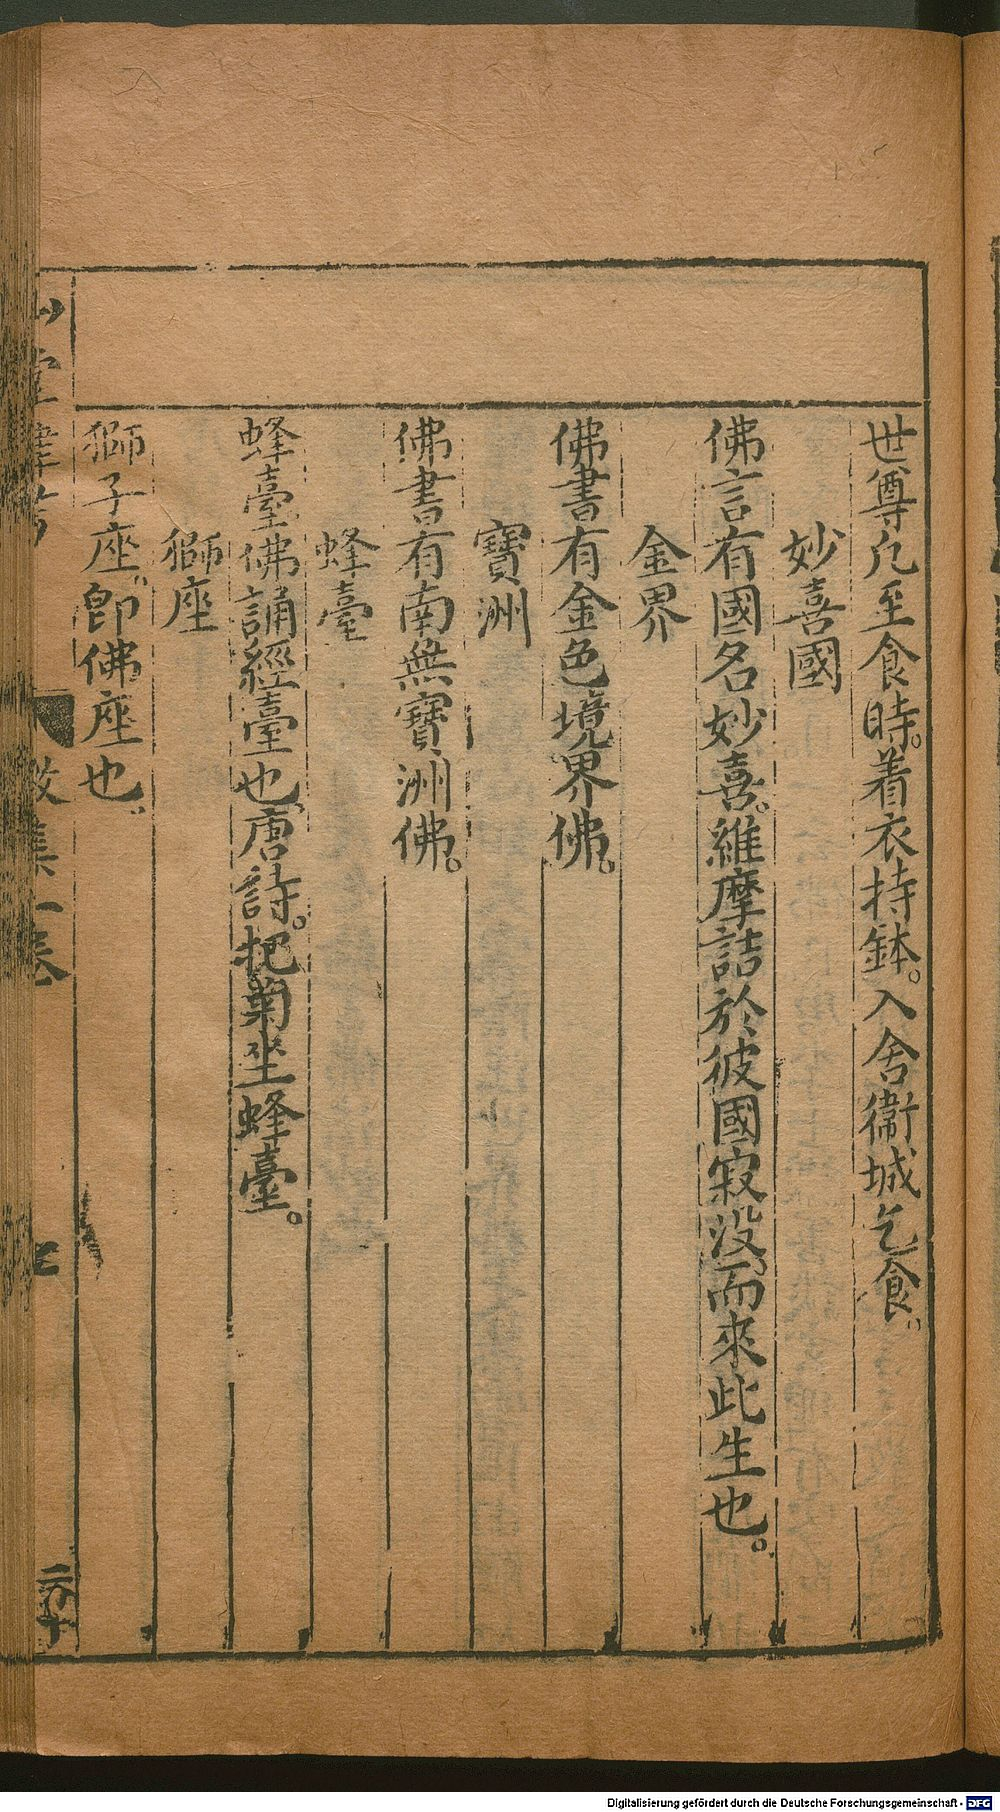 世尊凡至食時。着衣持鉢。入舍衞城乞食。
妙喜國
佛言有國名妙喜。維摩詰於彼國寂沒。而來此生也。
金界
佛書有金色境界佛。
寶洲
佛書有南無寶洲佛。
蜂臺
蜂臺。佛誦經臺也。唐詩。把菊坐蜂臺。
獅座
獅子座。即佛座也。
Digitalisierung gefördert durch die Deutsche Forschungsgemeinschaft - DFG